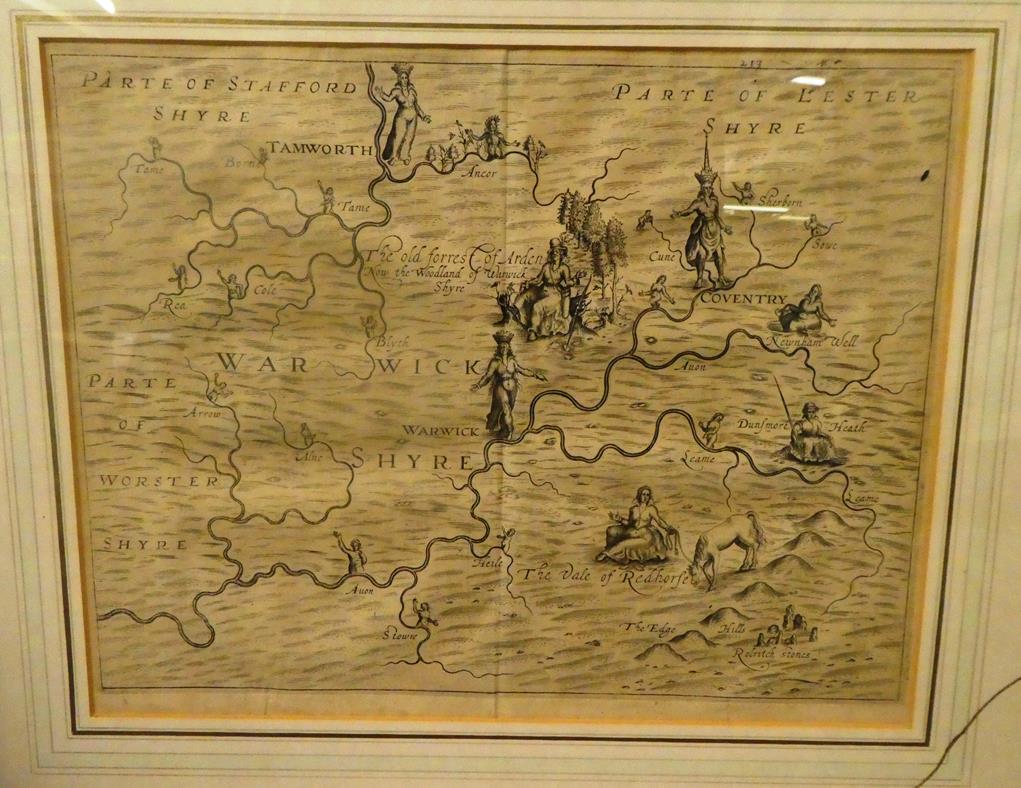 213
PARTE OF STAFFORD
SHYRE
PARTE OF LESTER
SHYRE
TAMWORTH
Tame
Borne
Ancor
Tame
Sherborn
Sowe
Cune
The old forrest of Arden
Now the Woodland of Warwick
Shyre
Rea
Cole
COVENTRY
Newnham Well
Blyth
WARWICK
Avon
PARTE
OF
WORSTER
SHYRE
Arrow
Alne
WARWICK
SHYRE
Dunsmore Heath
Leame
Leame
Heile
The Vale of Redhorse
Avon
Stowre
The Edge Hills
Rolritch stones